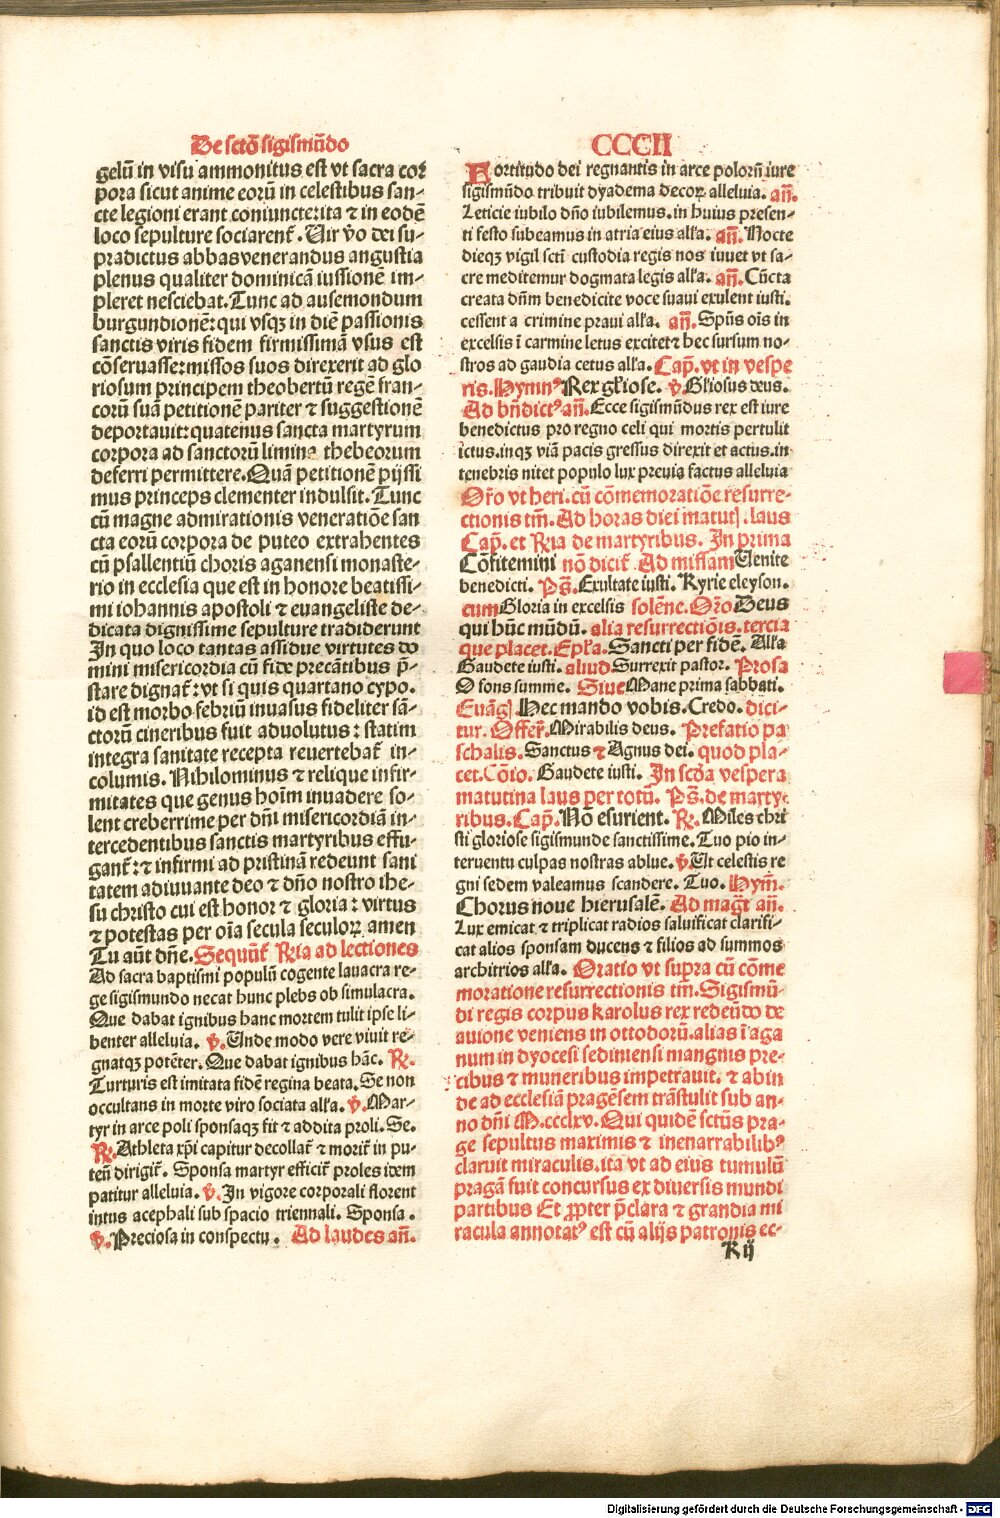 De sctō sigismūdo
gelū in visu ammonitus est vt sacra cor
pora sicut anime eorū in celestibus san-
cte legioni erant coniuncte:ita ⁊ in eodē
loco sepulture sociarent̄. Uir v̄o dei su-
pradictus abbas venerandus angustia
plenus qualiter dominicā iussionē im-
pleret nesciebat. Tunc ad ausemondum
burgundionē: qui vsqꝫ in diē passionis
sanctis viris fidem firmissimā vsus est
cōseruasse: missos suos direxerit ad glo
riosum principem theobertū regē fran-
corū suā petitionē pariter ⁊ suggestionē
deportauit: quatenus sancta martyrum
corpora ad sanctorū limina thebeorum
deferri permittere. Quā petitionē pijssi
mus princeps clementer indulsit. Tunc
cū magne admirationis veneratiōe san
cta eorū corpora de puteo extrahentes
cū psallentiū choris aganensi monaste-
rio in ecclesia que est in honore beatissi-
mi iohannis apostoli ⁊ euangeliste de-
dicata dignissime sepulture tradiderunt
In quo loco tantas assidue virtutes do
mini misericordia cū fide precātibus p̄-
stare dignat̄: vt si quis quartano typo.
id est morbo febriū inuasus fideliter sā-
ctorū cineribus fuit aduolutus: statim
integra sanitate recepta reuertebat̄ in-
columis. Nihilominus ⁊ relique infir-
mitates que genus hoīm inuadere so-
lent creberrime per dn̄i misericordiā in-
tercedentibus sanctis martyribus effu-
gant̄: ⁊ infirmi ad pristinā redeunt sani
tatem adiuuante deo ⁊ dn̄o nostro ihe-
su christo cui est honor ⁊ gloria: virtus
⁊ potestas per oīa secula seculorꝝ amen
Tu aūt dn̄e. Sequūt̄ Rn̄ia ad lectiones
Ad sacra baptismi populū cogente lauacra re-
ge sigismundo necat hunc plebs ob simulacra.
Que dabat ignibus hanc mortem tulit ipse li-
benter alleluia. ℣. Unde modo vere viuit re-
gnatqꝫ potēter. Que dabat ignibus hāc. ℟.
Turturis est imitata fidē regina beata. Se non
occultans in morte viro sociata all'a. ℣. Mar-
tyr in arce poli sponsaqꝫ fit ⁊ addita proli. Se.
℟. Athleta xp̄i capitur decollat̄ ⁊ morit̄ in pu-
teū dirigit̄. Sponsa martyr efficit̄ proles idem
patitur alleluia. ℣. In vigore corporali florent
intus acephali sub spacio triennali. Sponsa.
℣. Preciosa in conspectu. Ad laudes an̄.
CCCII
Fortitudo dei regnantis in arce polorū iure
sigismūdo tribuit dyadema decorꝝ alleluia. an̄.
Leticie iubilo dn̄o iubilemus. in huius presen-
ti festo subeamus in atria eius all'a. an̄. Nocte
dieqꝫ vigil sctī custodia regis nos iuuet vt sa-
cre meditemur dogmata legis all'a. an̄. Cūcta
creata dn̄m benedicite voce suaui exulent iusti.
cessent a crimine praui all'a. an̄. Spūs oīs in
excelsis ī carmine letus excitet ⁊ hec sursum no-
stros ad gaudia cetus all'a. Cap̄. vt in vespe
ris. Hymnꝰ Rex gl'iose. ℣. Gl'iosus deus.
Ad bn̄dictꝰ an̄. Ecce sigismūdus rex est iure
benedictus pro regno celi qui mortis pertulit
ictus. inqꝫ viā pacis gressus direxit et actus. in
tenebris nitet populo lux preuia factus alleluia
Or̄o vt heri. cū cōmemoratiōe resurre-
ctionis tm̄. Ad horas diei matut̄. laus
Cap̄. et Rn̄ia de martyribus. In prima
Cōfitemini nō dicit̄ Ad missam Uenite
benedicti. Ps̄. Exultate iusti. Kyrie eleyson.
cum Gloria in excelsis solēne. Or̄o Deus
qui hūc mūdū. alia resurrectiōis. tercia
que placet. Epl'a. Sancti per fidē. All'a
Gaudete iusti. aliud Surrexit pastor. Prosa
O fons summe. Siue Mane prima sabbati.
Euāḡ Hec mando vobis. Credo. dici-
tur. Offer̄. Mirabilis deus. Prefatio pa
schalis. Sanctus ⁊ Agnus dei. quod pla-
cet. Cōio. Gaudete iusti. In scd̄a vespera
matutina laus per totū. Ps̄. de marty-
ribus. Cap̄. Nō esurient. ℟. Miles chri
sti gloriose sigismunde sanctissime. Tuo pio in-
teruentu culpas nostras ablue. ℣. Ut celestis re
gni sedem valeamus scandere. Tuo. Hym̄.
Chorus noue hierusalē. Ad maḡt an̄.
Lux emicat ⁊ triplicat radios saluificat clarifi-
cat alios sponsam ducens ⁊ filios ad summos
architrios all'a. Oratio vt supra cū cōme
moratione resurrectionis tm̄. Sigismū-
di regis corpus karolus rex redeūdo de
auione veniens in ottodorū. alias ī aga
num in dyocesi sediniensi mangnis pre-
cibus ⁊ muneribus impetrauit. ⁊ abin
de ad ecclesiā pragēsem trāstulit sub an-
no dn̄i M.ccclxv. Qui quidē sctūs pra-
ge sepultus maximis ⁊ inenarrabilibꝰ
claruit miraculis. ita vt ad eius tumulū
pragā fuit concursus ex diuersis mundi
partibus Et ꝓpter p̄clara ⁊ grandia mi
racula annotatꝰ est cū alijs patronis ec-
K ij
Digitalisierung gefördert durch die Deutsche Forschungsgemeinschaft - DFG